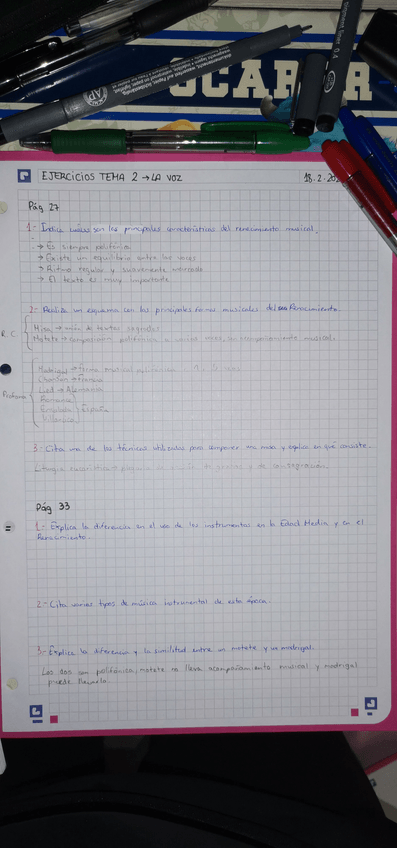 OSCAR
EJERCICIOS TEMA 2 → LA VOZ
18.2.20
Pág 27
1- Indica cuáles son las principales características del renacimiento musical.
→ Es siempre polifónica
→ Existe un equilibrio entre las voces
→ Ritmo regular y suavemente marcado
→ El texto es muy importante
2- Realiza un esquema con las principales formas musicales del Renacimiento.
Misa → de textos sagrados
Motete → composición polifónica a varias voces, sin acompañamiento musical.
Profana
Madrigal → forma musical
Chanson → Francia
Lied → Alemania
Romance
Ensalada España
Villancico
3- Cita una de las técnicas utilizadas para componer una misa y explica en qué consiste.
Pág 33
1- Explica la diferencia en el uso de los instrumentos en la Edad Media y en el
Renacimiento.
2- Cita varios tipos de música instrumental de esta época.
3- Explica la diferencia y la similitud entre un motete y un madrigal.
Los dos son polifónica, motete no lleva acompañamiento musical y madrigal
puede llevarlo.